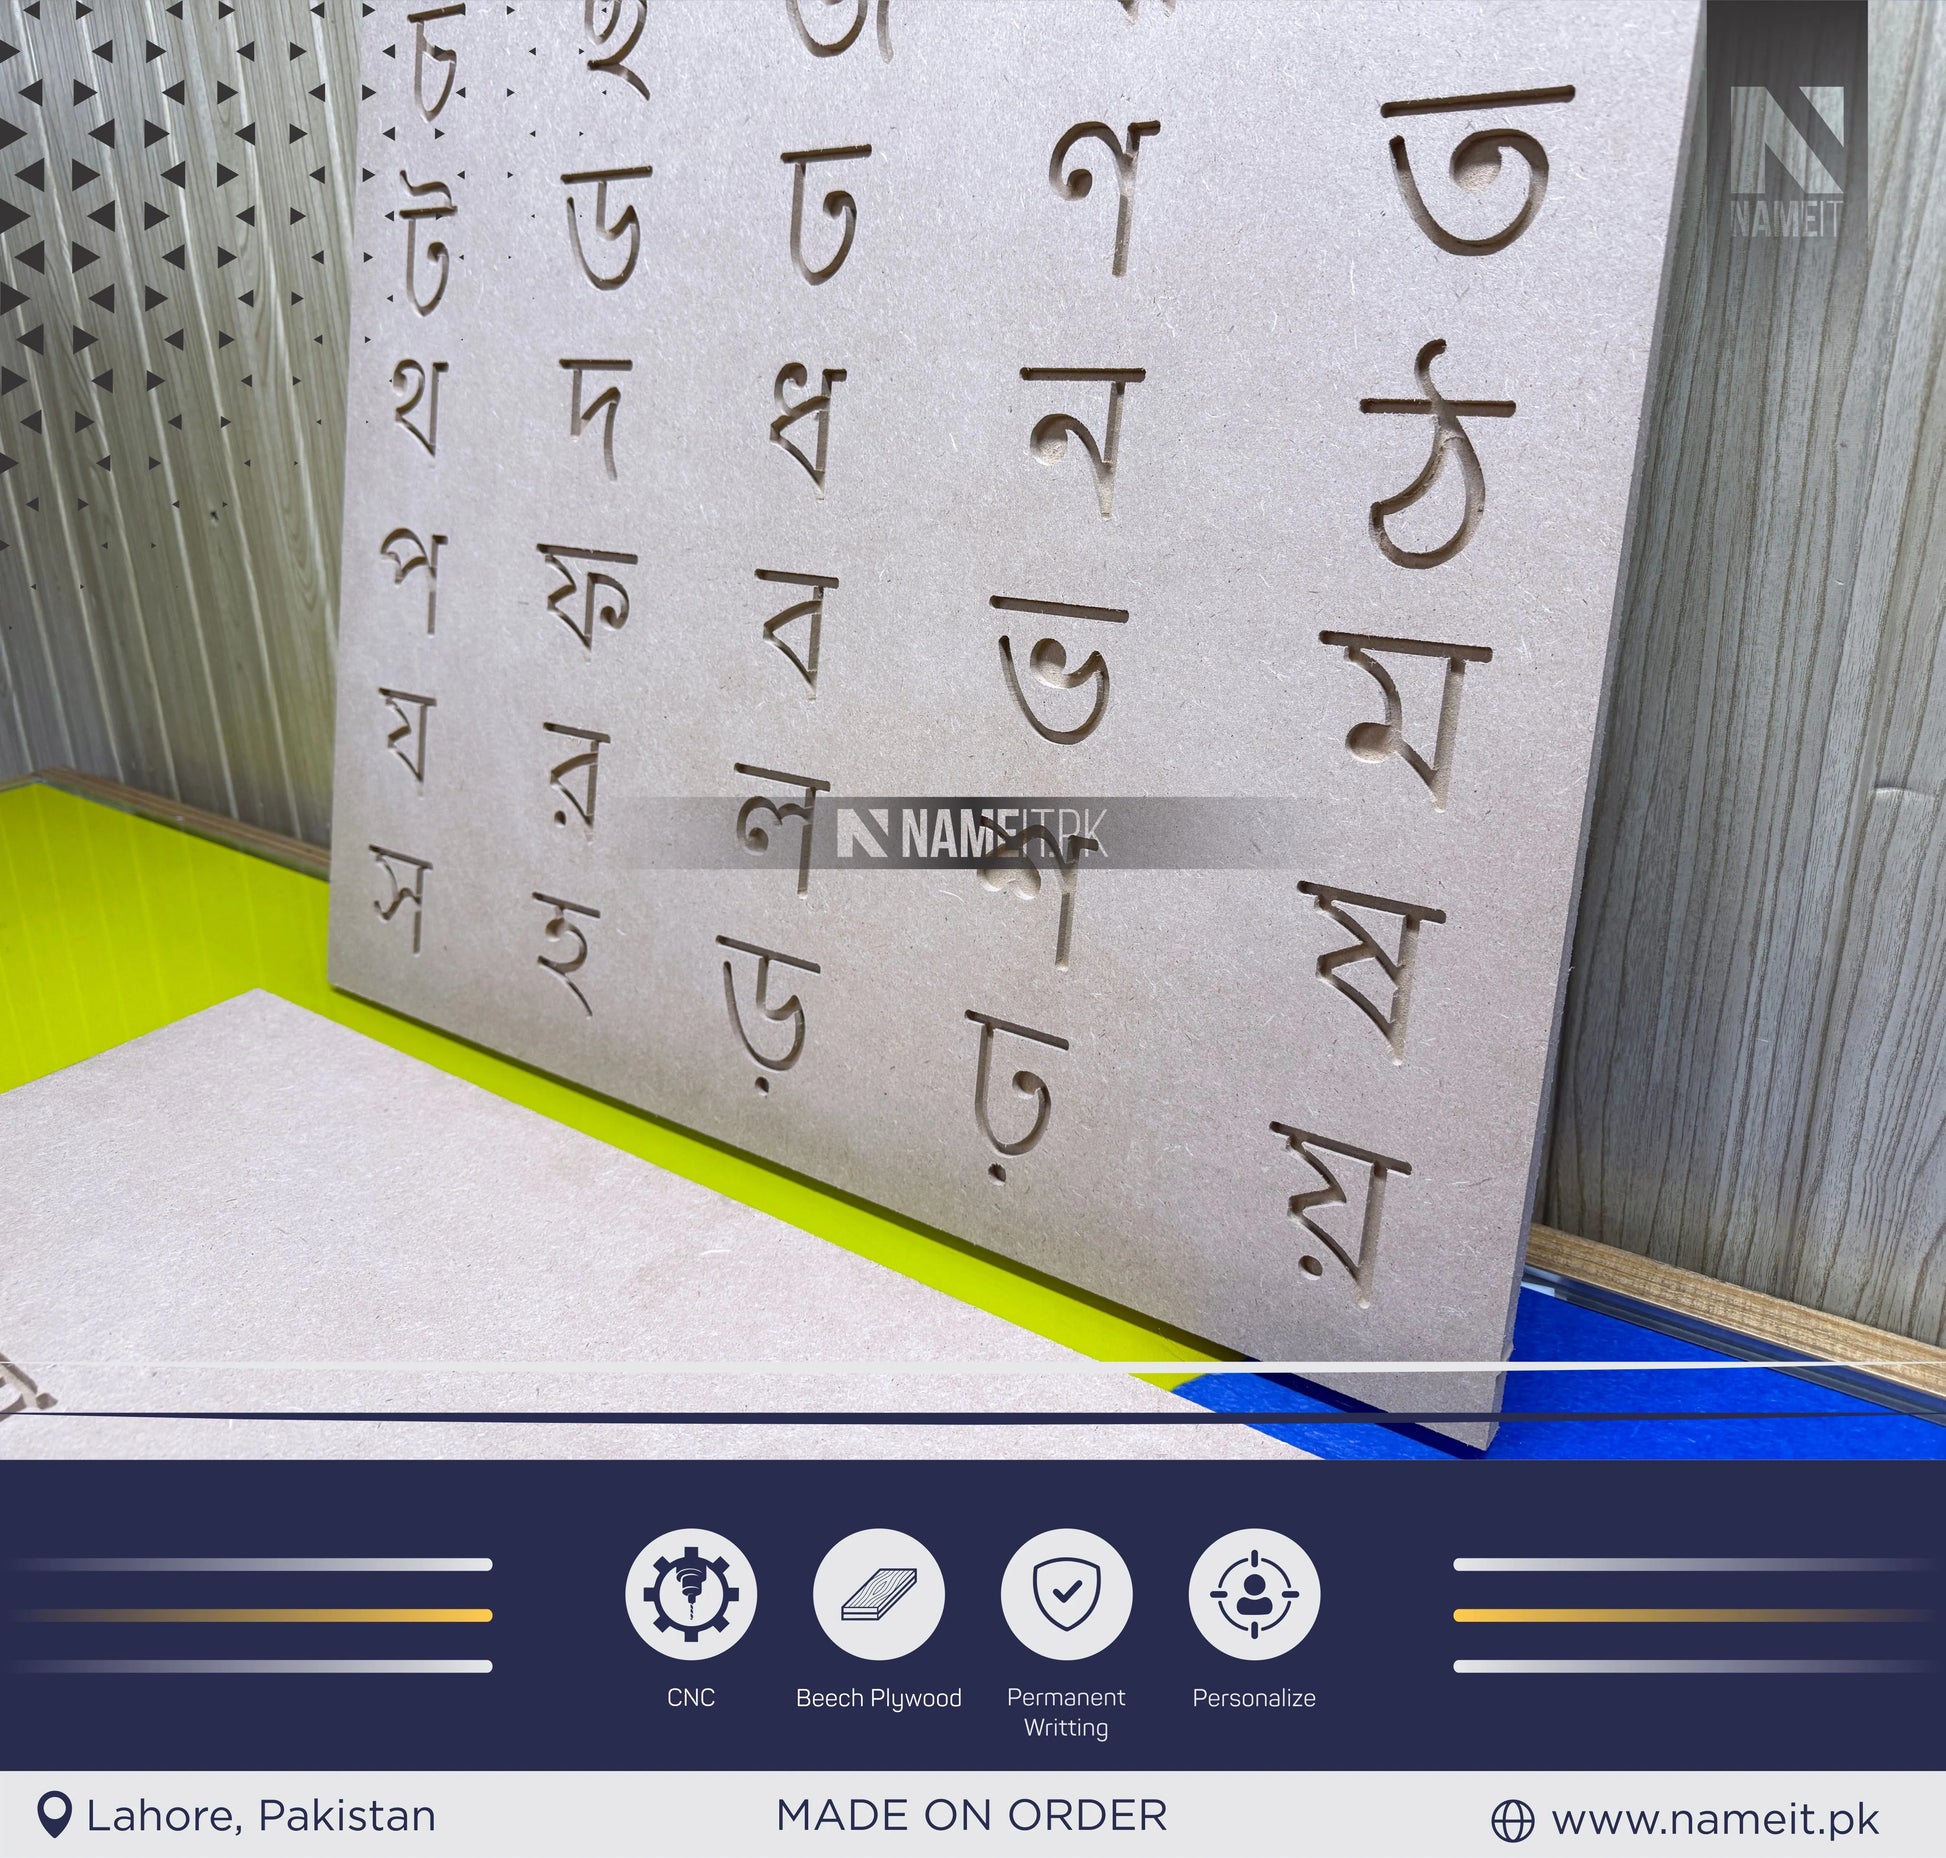 NAMEIT
চ ছ জ
ট ড ঢ ণ ত
থ দ ধ ন ঠ
প ফ ব ভ ম
য র ল শ ষ
NAMEIT.PK
স হ ড় ঢ় য়
CNC
Beech Plywood
Permanent
Writting
Personalize
Lahore, Pakistan
MADE ON ORDER
www.nameit.pk